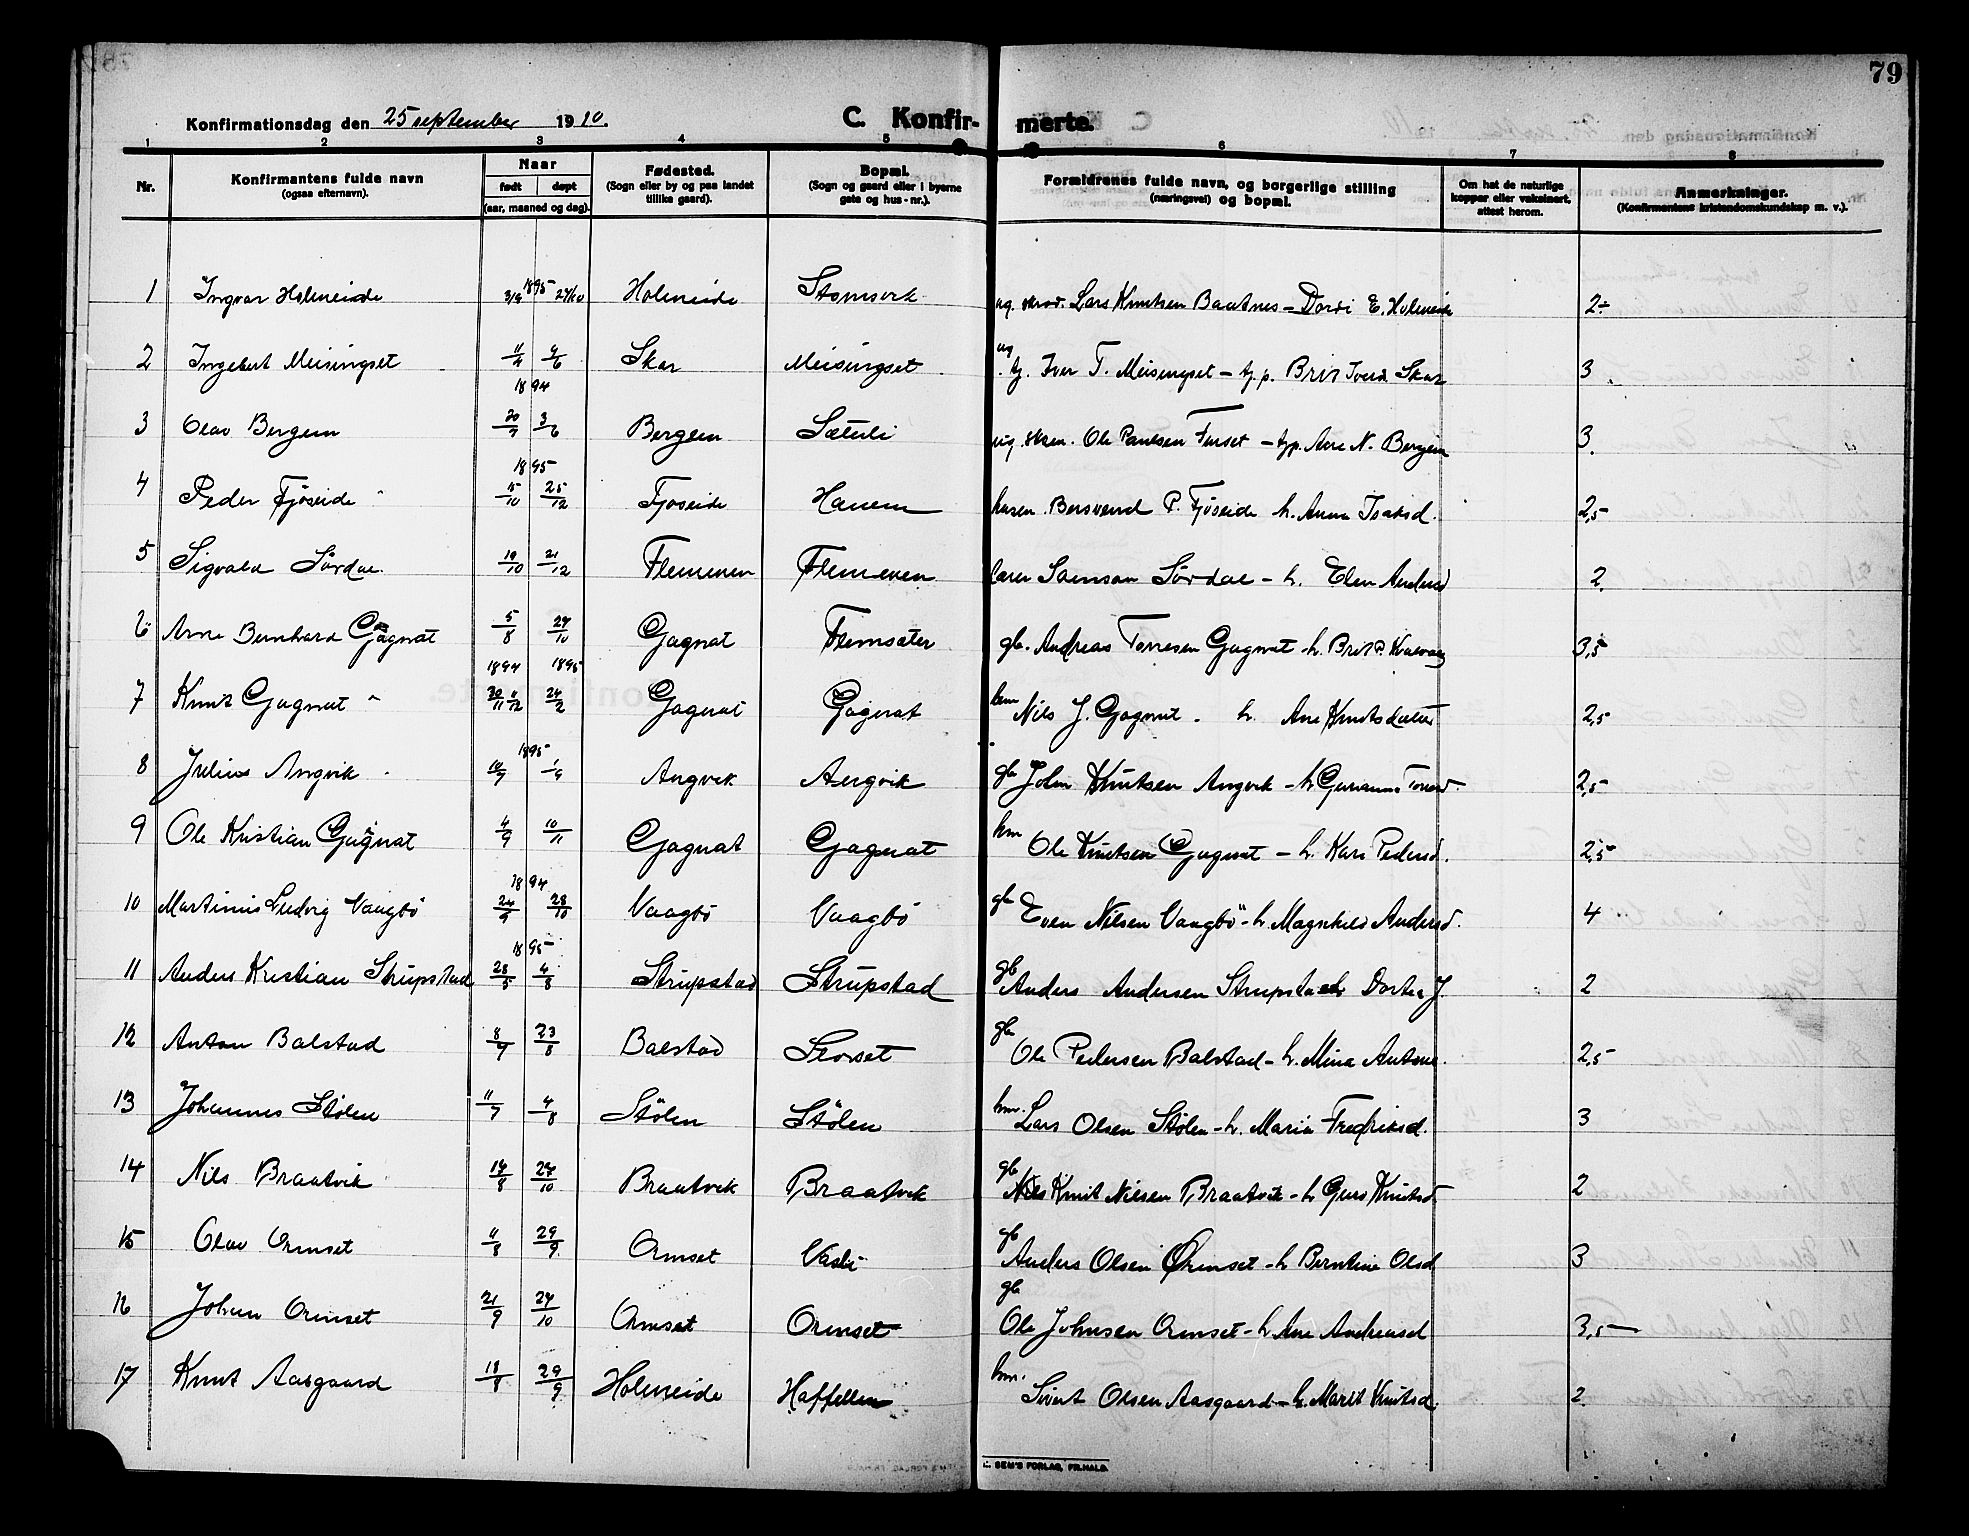 79
Konfirmationsdag den 25 september 1910. C. Konfirmerte.
1 2 3 4 5 6 7 8
Nr. Konfirmantens fulde navn (ogsaa efternavn). Naar født døpt (aar, maaned og dag). Fødested. (Sogn eller by og paa landet tillike gaard). Bopæl. (Sogn og gaard eller i byerne gate og hus-nr.). Forældrenes fulde navn, og borgerlige stilling (næringsvei) og bopæl. Om hat de naturlige kopper eller vaksinert, attest herom. Anmerkninger. (Konfirmantens kristendomskundskap m. v.).
1 Ingvar Holmeide 3/9 1895 27/10 Holmeide Lars Knutsen Baatnes - Dordi E. Holmeide 2÷
2 Ingebert Meisingset 11/4 4/6 Skar Meisingset ug. tj. Iver T. Meisingset - tj. p. Brit Iversd Skar 3
1894
3 Olav Bergem 20/7 3/6 Bergem Sætuli ug. Ole Paulsen Furset - tjp. Ane N. Bergem 3.
1895
4 Peder Fjøseide 15/10 25/12 Fjøseide Hanem Bersvend P. Fjøseide h. Anna Isaksd. 2,5
5 Sigvald Sørdal 19/10 21/12 Flemmen Flemmen Samson Sørdal - h. Elen Andersd 2
6 Arne Bernhard Gagnat 5/8 27/10 Gagnat Flemsæter gb. Andreas Torresen Gagnat - h. Brit P. 3,5
1894 1895
7 Knut Gagnat 30/11 24/2 Gagnat Gagnat Nils J. Gagnat . h. Ane Knutsdatter 2,5
1895
8 Julius Angvik 10/7 1/9 Angvik Angvik gb John Knutsen Angvik - h Gurianna 2,5
9 Ole Kristian Gagnat 4/9 10/11 Gagnat Gagnat hm Ole Knutsen Gagnat - h. Kari Pedersd. 2,5
1894
10 Martinus Ludvig Vaagbø 24/9 28/10 Vaagbø Vaagbø gb Even Nilsen Vaagbø - h Magnhild Andersd. 4
1895
11 Anders Kristian Strupstad 28/5 4/8 Strupstad Strupstad gb Anders Andersen Strupstad h Dortea J. 2
12 Anton Balstad 8/7 23/8 Balstad gb Ole Pedersen Balstad - h. Mina Antons 2,5
13 Johannes Stølen 11/7 4/8 Stølen Stølen hm. Lars Olsen Stølen - h. Maria Fredriksd. 3
14 Nils Braatvik 14/8 27/10 Braatvik Braatvik gb Knut Nilsen Braatvik - h Guro Knutsd. 2
15 Olav Ormset 11/8 29/9 Ormset Vasli gb Anders Olsen Ormset - h Berntine Olsd 3
16 Johan Ormset 21/9 27/10 Ormset Ormset gb Ole Johnsen Ormset - h Ane Andreasd 3,5
17 Knut Aasgaard 18/8 29/9 Holmeide Haffellen hm. Sivert Olsen Aasgaard - h. Marit Knutsd. 2
SEM'S FORLAG, FR.HALD.